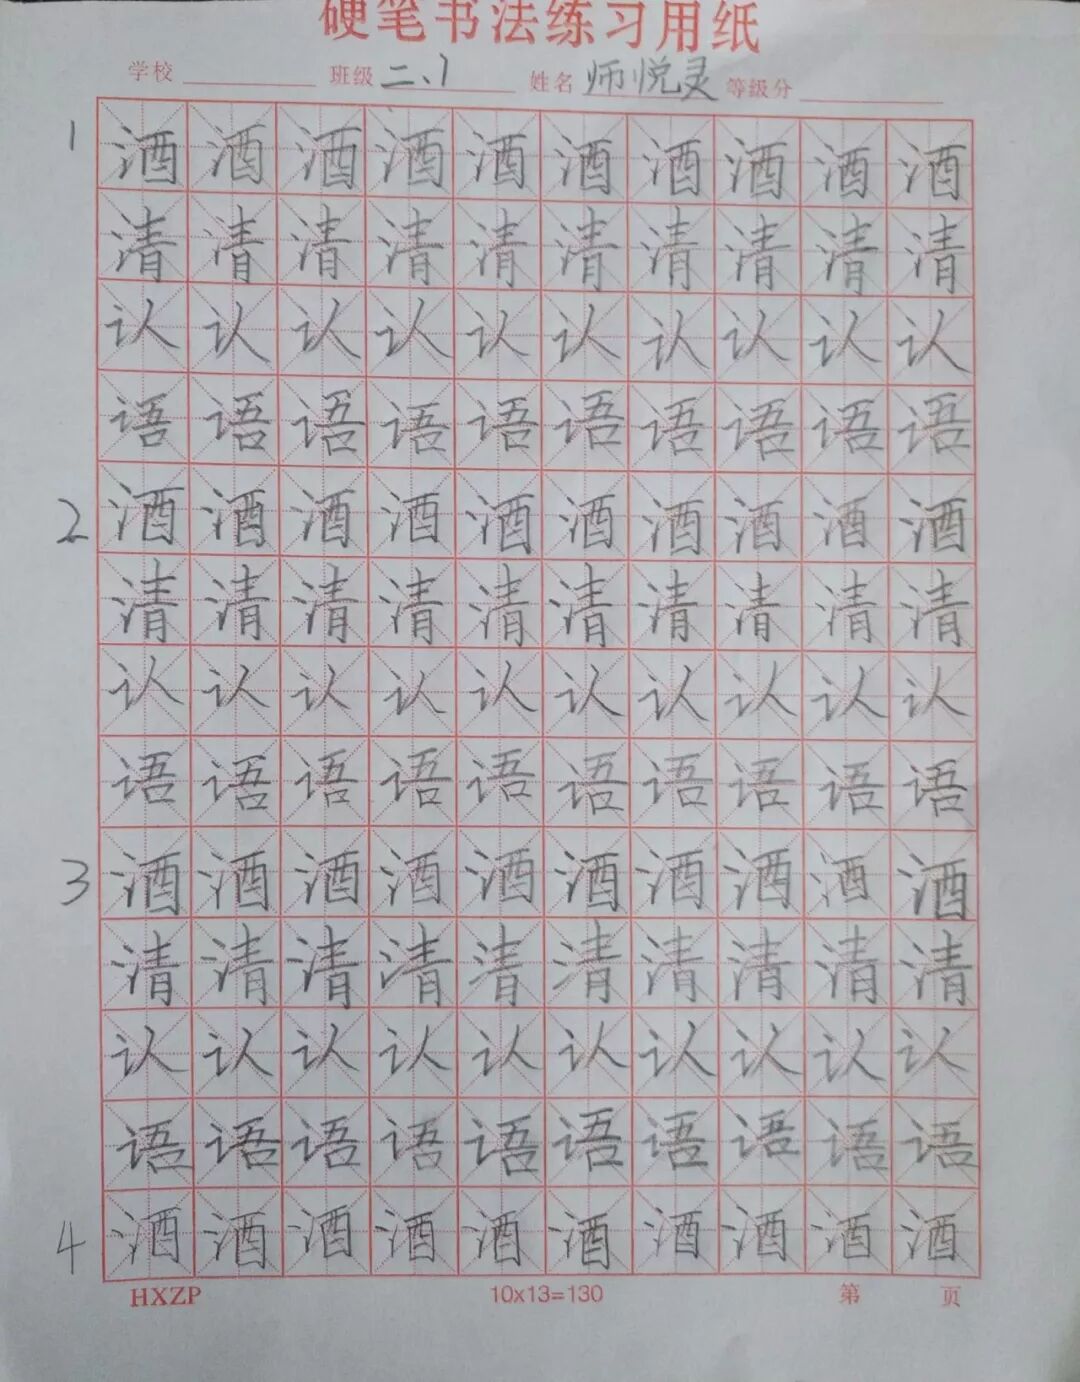 硬笔书法练习用纸
学校 班级 二、1 姓名 师悦灵 等级分
1 酒酒酒酒酒酒酒酒酒酒
清清清清清清清清清清
认认认认认认认认认认
语语语语语语语语语语
2 酒酒酒酒酒酒酒酒酒酒
清清清清清清清清清清
认认认认认认认认认认
语语语语语语语语语语
3 酒酒酒酒酒酒酒酒酒酒
清清清清清清清清清清
认认认认认认认认认认
语语语语语语语语语语
4 酒酒酒酒酒酒酒酒酒酒
HXZP 10x13=130 第 页